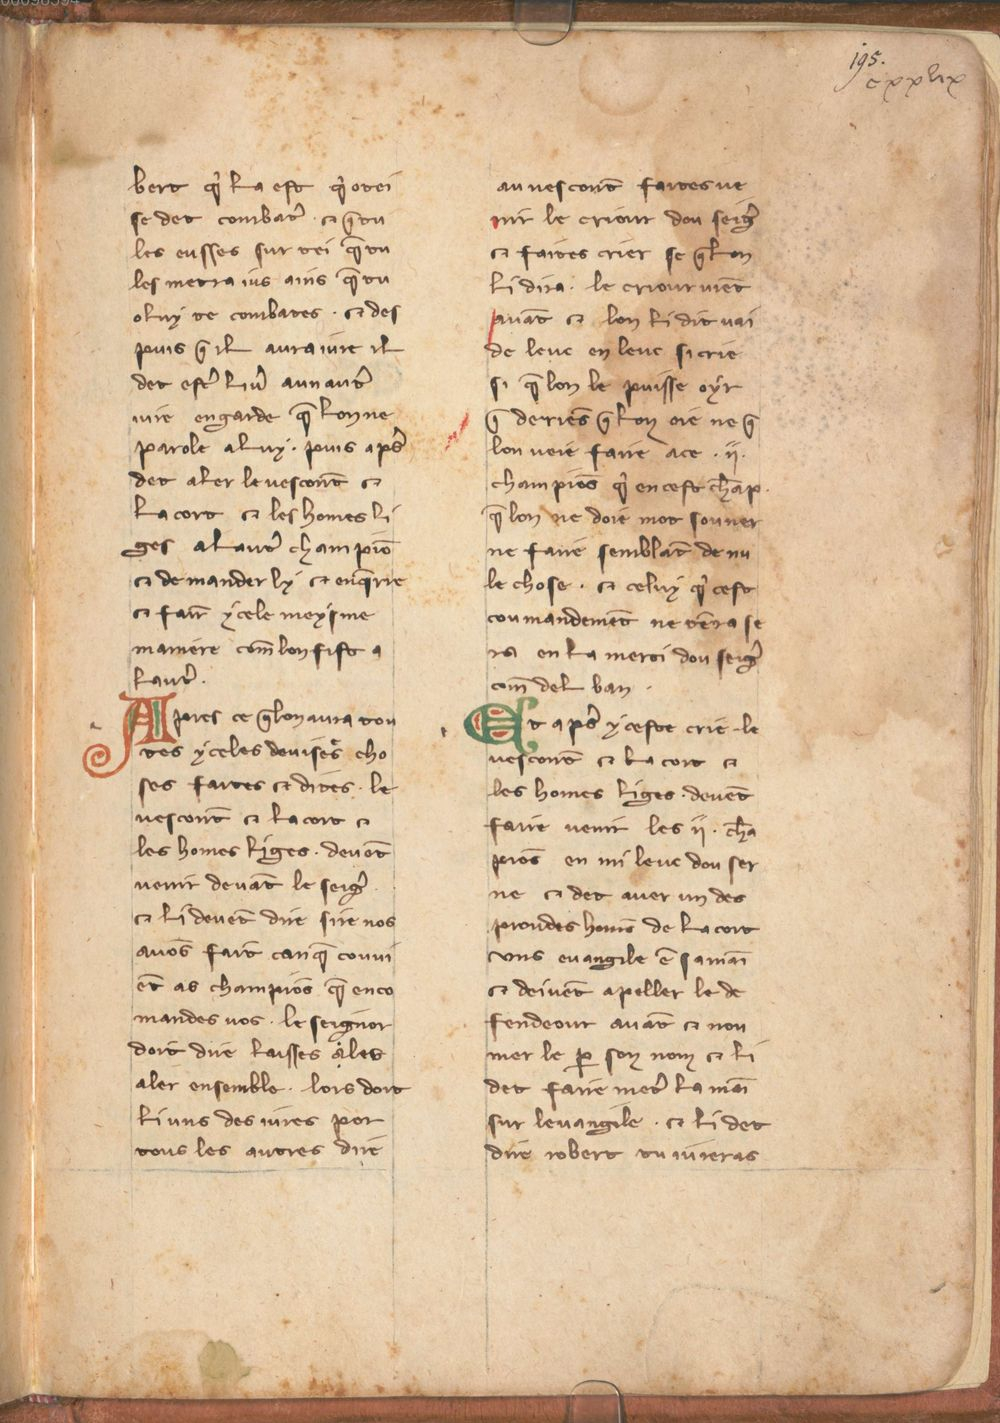 195.
cxxlix
bert q̉ la est q̉ o tei
se det combat̉ · ⁊ q̄ tu
les eusses sur tei q̄ tu
les metra ius ains q̄ tu
o luy te combates · ⁊ des
puis q̄ il aura iure il
det est̉ liủ a un aut̉
iure en garde q̄ lon ne
parole a luy · puis ap̉s
det aler le vescont̄ ⁊
la cort ⁊ les homes li
ges a laut̉ champiō
⁊ demander ly ⁊ enq̄rre
⁊ fair̄ ycele meysme
maniere com̄ lon fist a
laut̉ ·
Apres ce q̄ lon aura tou
tes yceles devisees cho
ses faites ⁊ dites · le
vescont̄ ⁊ la cort ⁊
les homes liges · devēt
venir devāt le seig̉
⁊ li devēt dire sire nos
avōs fait can q̄ couvi
ēt as champiōs q̄ enco
mandes vos · le seignor
doit dire laisses ales
aler ensemble · lors doit
li uns des iures por
tous les autres dire
au vescont̄ faites ve
nir le criour dou seig̉
⁊ faites crier se q̄ lon
li dira · le criour viēt
avāt ⁊ lon li dit vai
de leuc en leuc si crie
si q̄ lon le puisse oyr
q̄ de riēs q̄ lon oie ne q̄
lon veie faire a ce · ii ·
champiōs q̉ en cest chāp ·
q̄ lon ne doie mot souner
ne faire semblāt de nu
le chose · ⁊ celuy q̉ cest
coumandemēt ne tēra se
ra en la merci dou seig̉
com̄ del ban ·
Et ap̉s yceste crie · le
vescont̄ ⁊ la cort ⁊
les homes liges · devēt
faire venir les ii · chā
piōs en mi leuc dou ser
ne ⁊ det aver un des
proudes homēs de la cort
uns euangile ē sa maī
⁊ deivent apeller le de
fendeour avāt ⁊ nou
mer le ꝑ son nom ⁊ li
det faire met̉ la maī
sur leuangile · ⁊ li det
dire robert tu iureras